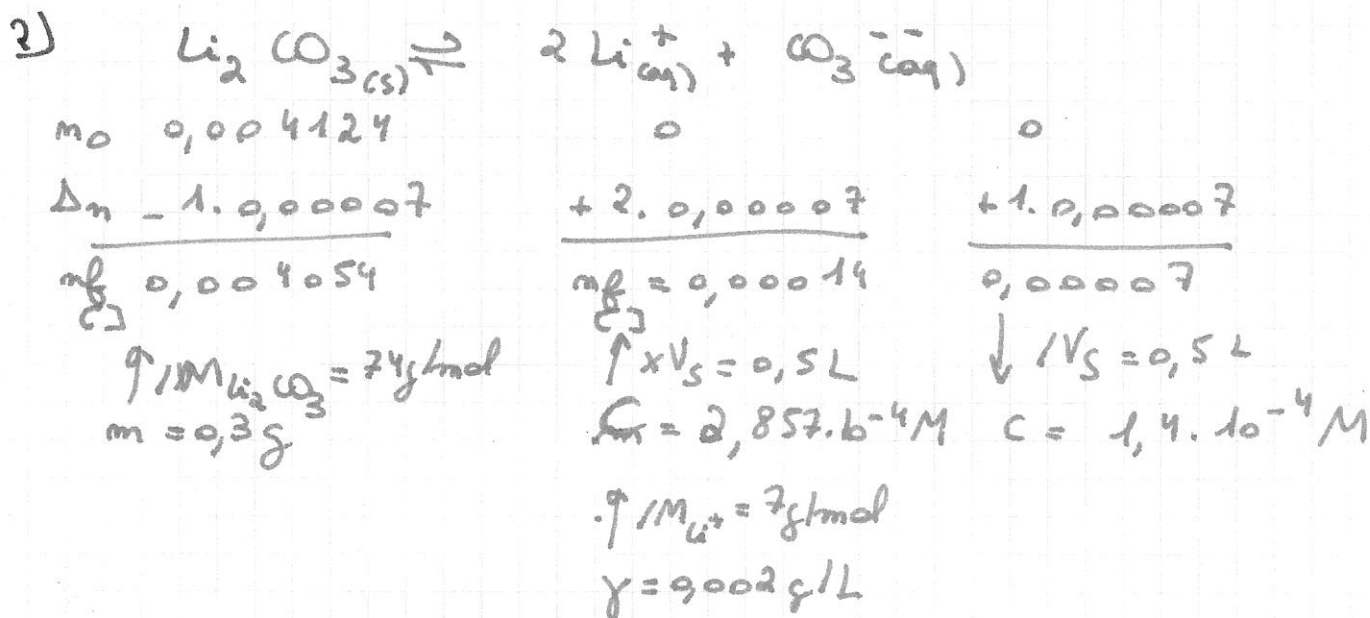 2) Li₂CO₃(s) ⇌ 2 Li⁺(aq) + CO₃⁻⁻(aq)
n₀ 0,004124 0 0
Δn - 1. 0,00007 + 2. 0,00007 + 1. 0,00007
nf 0,004054 nf = 0,00014 0,00007
[ ] [ ]
↑ /M Li₂CO₃ = 74g/mol ↑ x Vs = 0,5 L ↓ /Vs = 0,5 L
m = 0,3 g C = 2,857.10⁻⁴ M C = 1,4. 10⁻⁴ M
↑ /M Li⁺ = 7g/mol
γ = 0,002 g/L